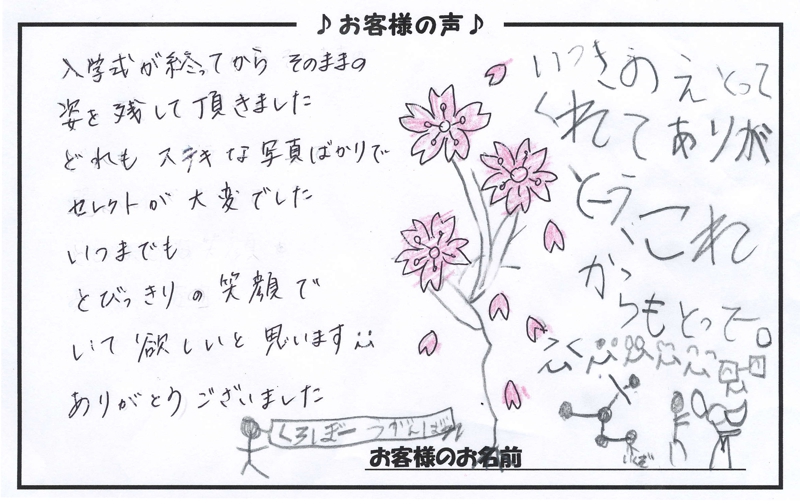 ♪お客様の声♪
入学式が終ってから そのままの
姿を残して頂きました
どれも ステキな写真ばかりで
セレクトが 大変でした
いつまでも
とびっきりの笑顔で
いて欲しいと思います
ありがとうございました
いつき
とって
くれてありが
とう、これ
から
もとってー。
お客様のお名前